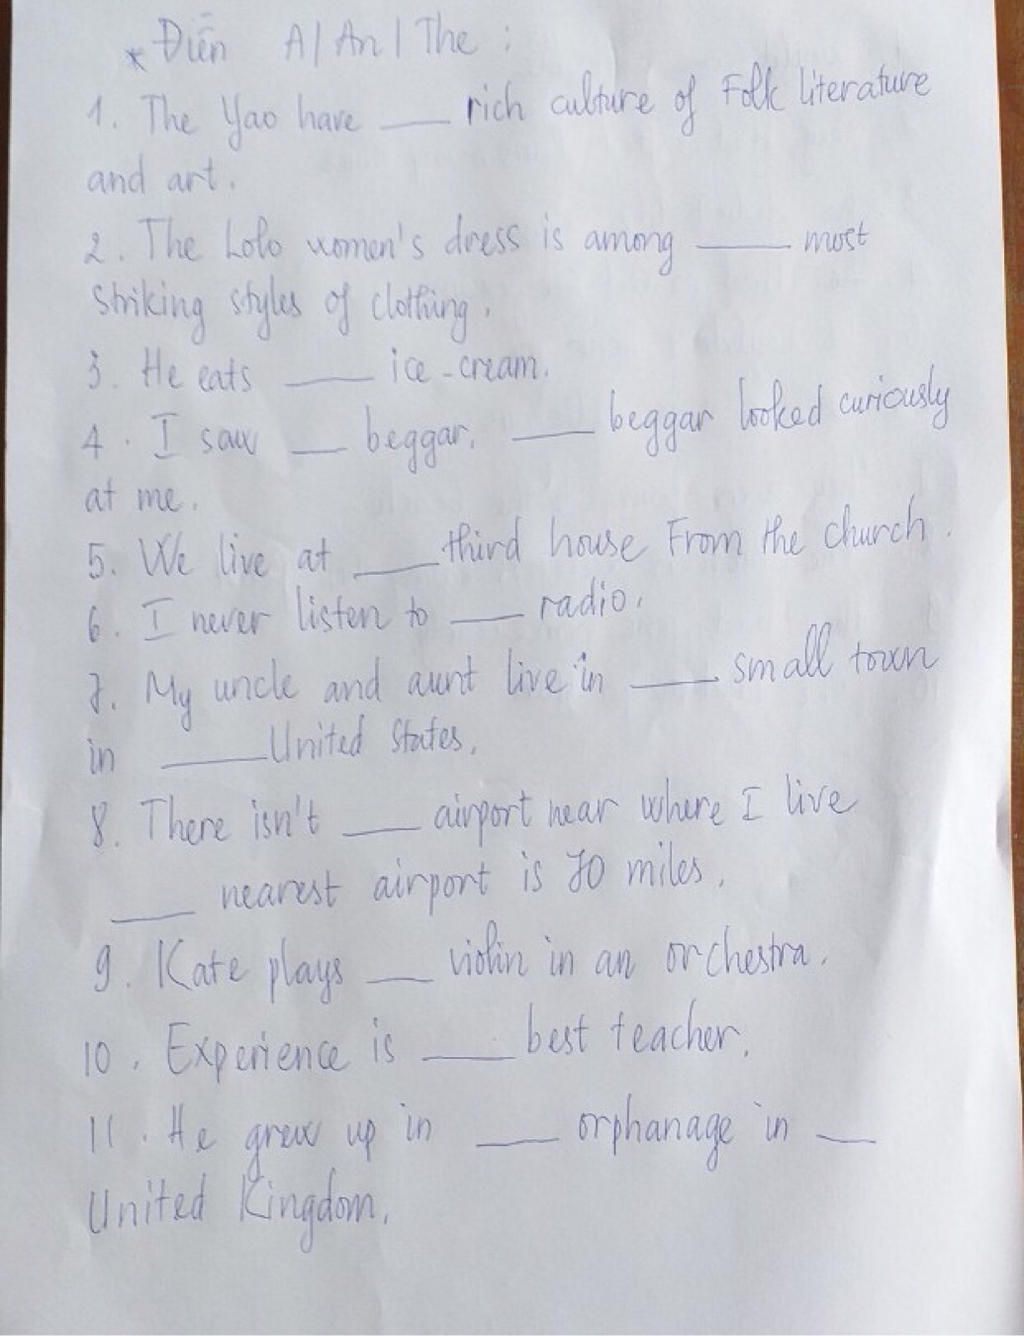 * Điền A/An/The:
1. The Yao have ___ rich culture of Folk literature
and art.
2. The Lolo women's dress is among ___ most
striking styles of clothing.
3. He eats ___ ice-cream.
4. I saw ___ beggar. ___ beggar looked curiously
at me.
5. We live at ___ third house From the church.
6. I never listen to ___ radio.
7. My uncle and aunt live in ___ small town
in ___ United States.
8. There isn't ___ airport near where I live
___ nearest airport is 70 miles.
9. Kate plays ___ violin in an orchestra.
10. Experience is ___ best teacher.
11. He grew up in ___ orphanage in ___
United Kingdom.